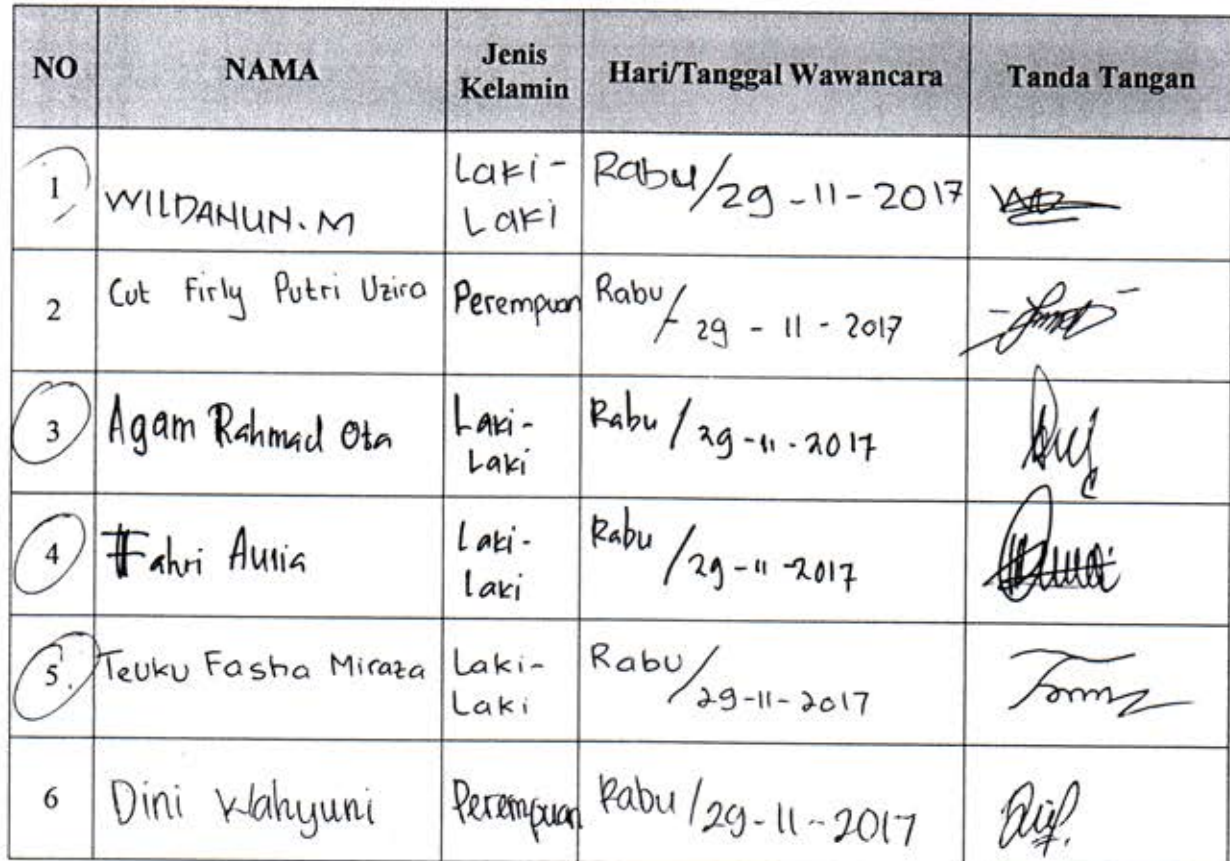 NO NAMA Jenis Kelamin Hari/Tanggal Wawancara Tanda Tangan
1 WILDANUN.M Laki-Laki Rabu/29-11-2017
2 Cut Firly Putri Uzira Perempuan Rabu/29-11-2017
3 Agam Rahmad Ota Laki-Laki Rabu/29-11-2017
4 Fahri Aulia Laki-laki Rabu/29-11-2017
5 Teuku Fasha Miraza Laki-Laki Rabu/29-11-2017
6 Dini Wahyuni Perempuan Rabu/29-11-2017